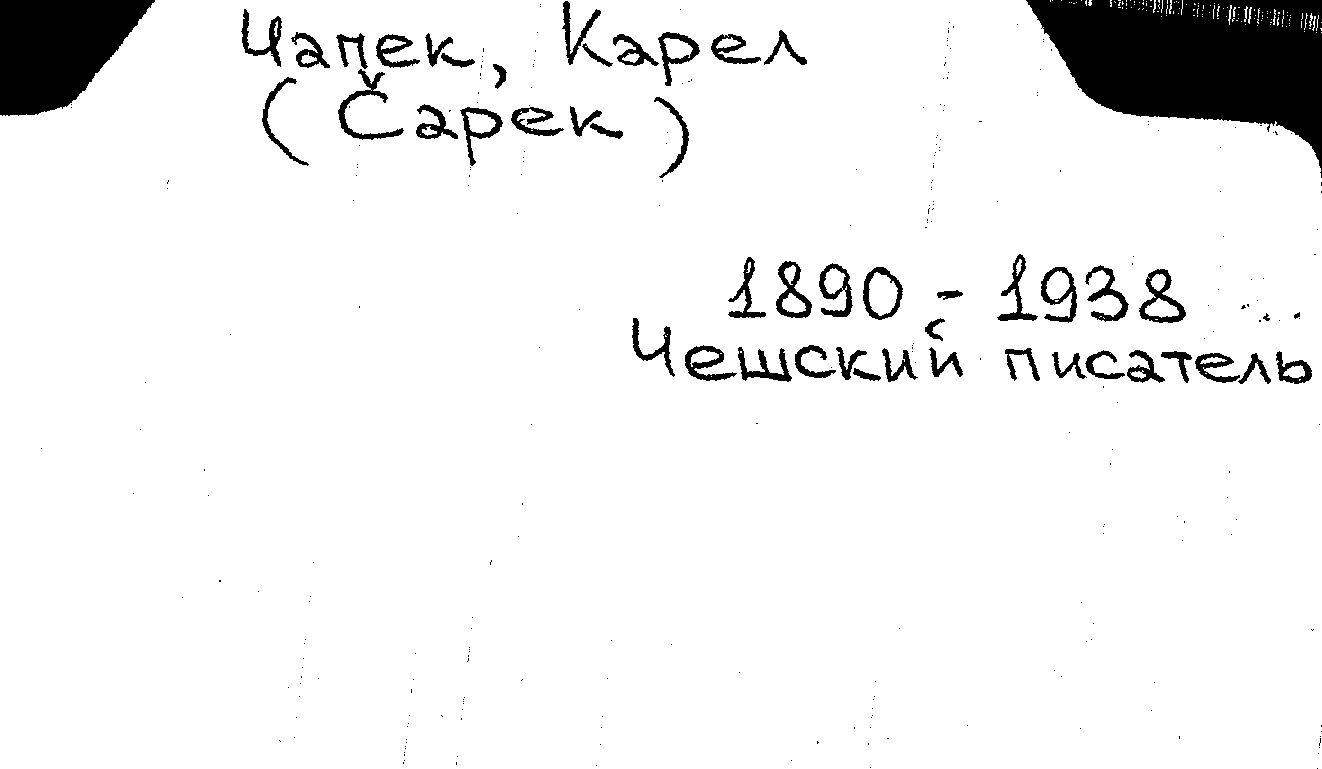 Чапек, Карел
(Čapek)
1890 - 1938
Чешский писатель